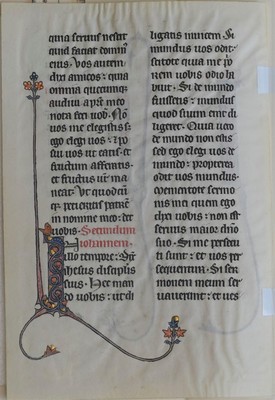 quia seruus nescit
quid faciat domin⁹
eius. Vos autem
dixi amicos: quia
omnia quecumq;
audiui a p̄re meo
nota feci uob. Nō
uos me elegistis: s;
ego elegi uos: ⁊ po
sui uos ut eatis. et
fructum afferatis.
et fructus ur̄ ma
neat. Ut quodcū
q; petieritis patrem
in nomine meo: det
uobis. Secundum
iohannem.
In illo tempore: Dix̄
ihesus discipulis
suis. Hec man
do uobis: ut di
ligatis inuicem. Si
mundus uos odit:
scitote quia me po
rem uobis odio ha
buit. Si de mundo
fuissetis: mundus
quod suum erat di
ligeret. Quia uero
de mundo non estis
sed ego elegi uos de
mundo: propterea
odit uos mundus.
Mementote sermo
nis mei quem ego
dixi uobis: non est
seruus maior dn̄o
suo. Si me persecu
ti sunt: et uos per
sequentur. Si ser
monem meum ser
uauerunt: et ues